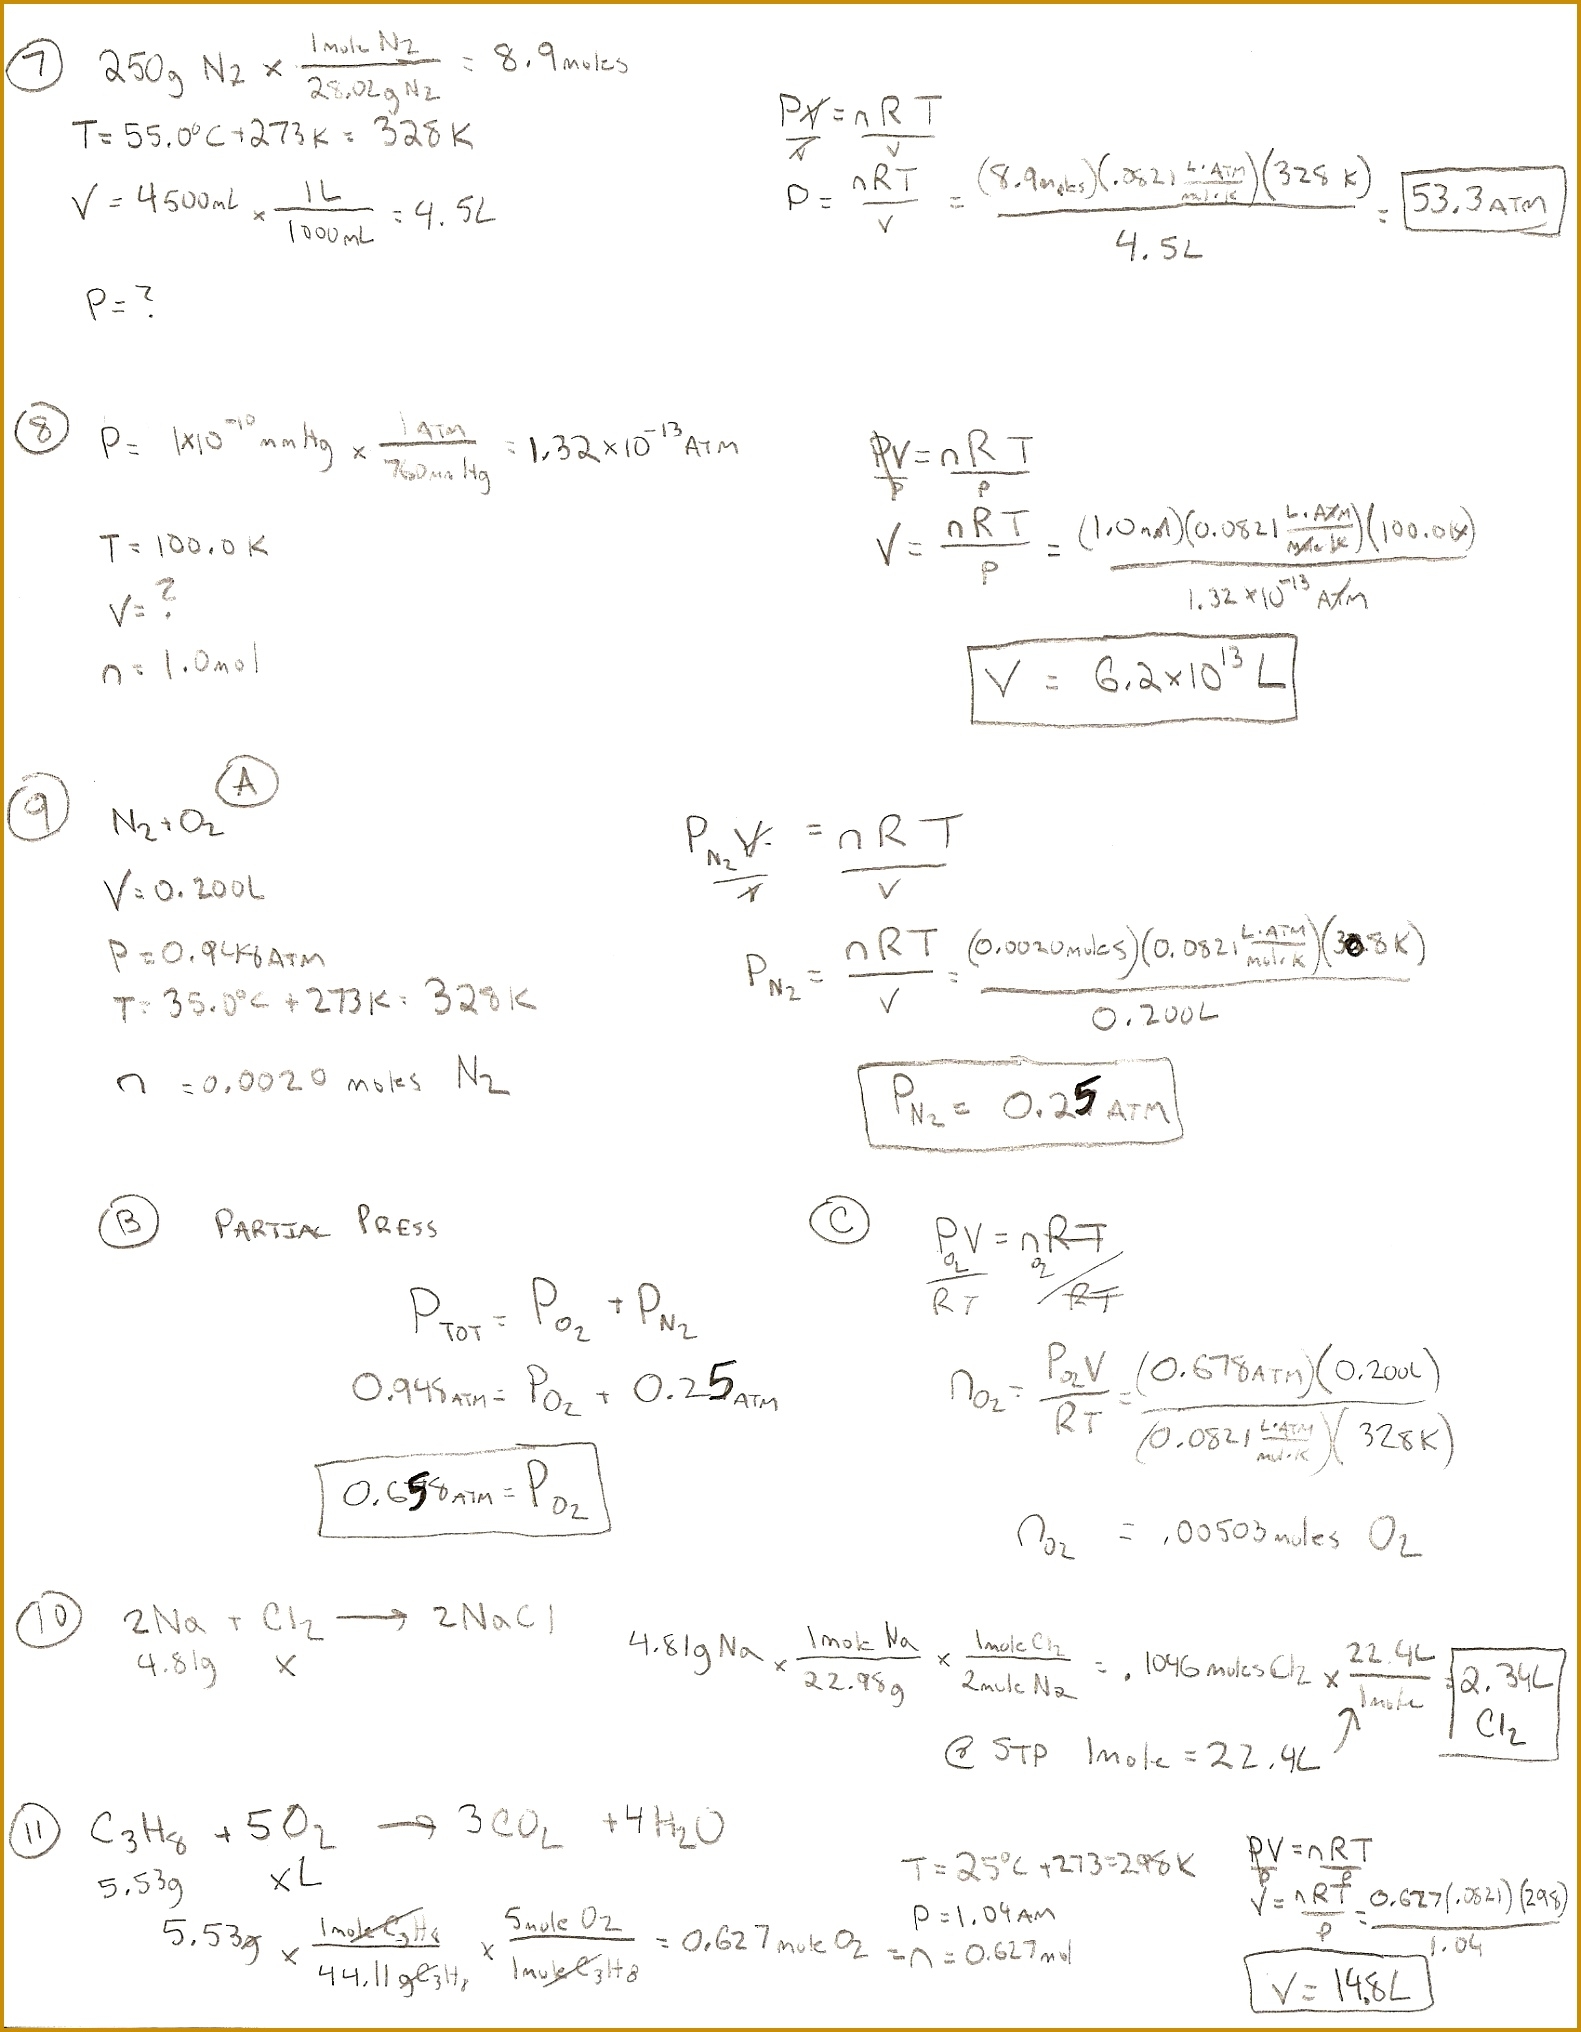 7 250g N2 × 1 mole N2 / 28.02g N2 = 8.9 moles
T = 55.0°C + 273K = 328K
V = 4500mL × 1L / 1000mL = 4.5L
P = ?
PV / V = nRT / V
P = nRT / V = (8.9 moles)(.0821 L·ATM / mol·K)(328 K) / 4.5L = 53.3 ATM
8 P = 1×10^-10 mmHg × 1 ATM / 760mmHg = 1.32×10^-13 ATM
T = 100.0K
V = ?
n = 1.0mol
PV / P = nRT / P
V = nRT / P = (1.0mol)(0.0821 L·ATM / mole·K)(100.0K) / 1.32×10^-13 ATM
V = 6.2×10^13 L
9 A
N2 + O2
V = 0.200L
P = 0.948 ATM
T = 35.0°C + 273K = 328K
n = 0.0020 moles N2
P N2 V / V = nRT / V
P N2 = nRT / V = (0.0020 moles)(0.0821 L·ATM / mol·K)(308K) / 0.200L
P N2 = 0.25 ATM
B PARTIAL PRESS
P TOT = P O2 + P N2
0.948 ATM = P O2 + 0.25 ATM
0.658 ATM = P O2
C P O2 V / RT = n O2 RT / RT
n O2 = P O2 V / RT = (0.678 ATM)(0.200L) / (0.0821 L·ATM / mol·K)(328K)
n O2 = .00503 moles O2
10 2Na + Cl2 → 2NaCl
4.81g x
4.81g Na × 1 mole Na / 22.98g × 1 mole Cl2 / 2 mole Na = .1046 moles Cl2 × 22.4L / 1 mole = 2.34L Cl2
@ STP 1 mole = 22.4L
11 C3H8 + 5O2 → 3CO2 + 4H2O
5.53g xL
5.53g × 1 mole C3H8 / 44.11g C3H8 × 5 mole O2 / 1 mole C3H8 = 0.627 mole O2 = n = 0.627 mol
T = 25°C + 273 = 298K
P = 1.04 ATM
PV / P = nRT / P
V = nRT / P = 0.627(.0821)(298) / 1.04
V = 14.8L